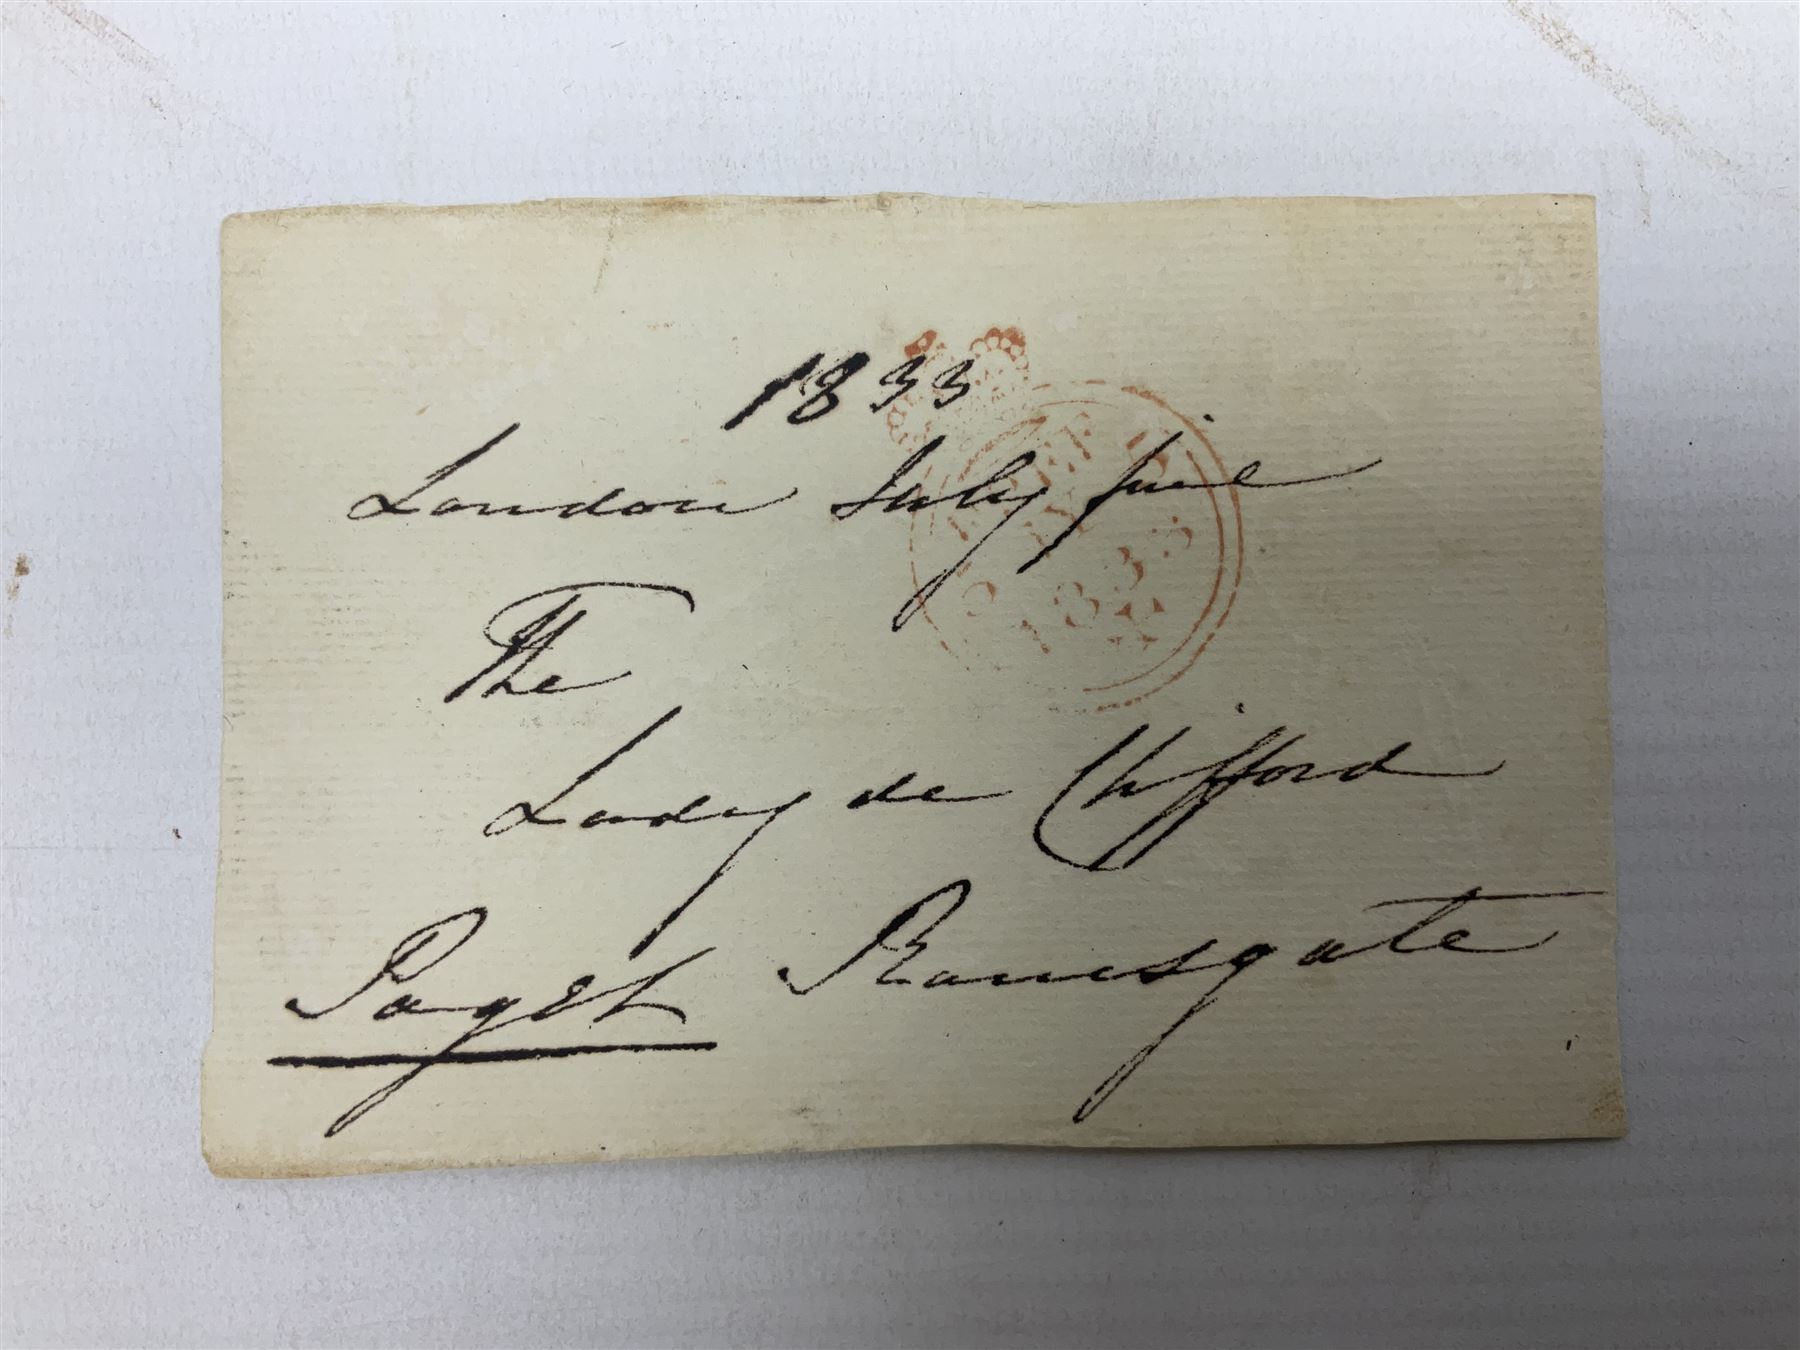 1833
London July five
The
Lady de Clifford
Paget Ramsgate
FREE
1833